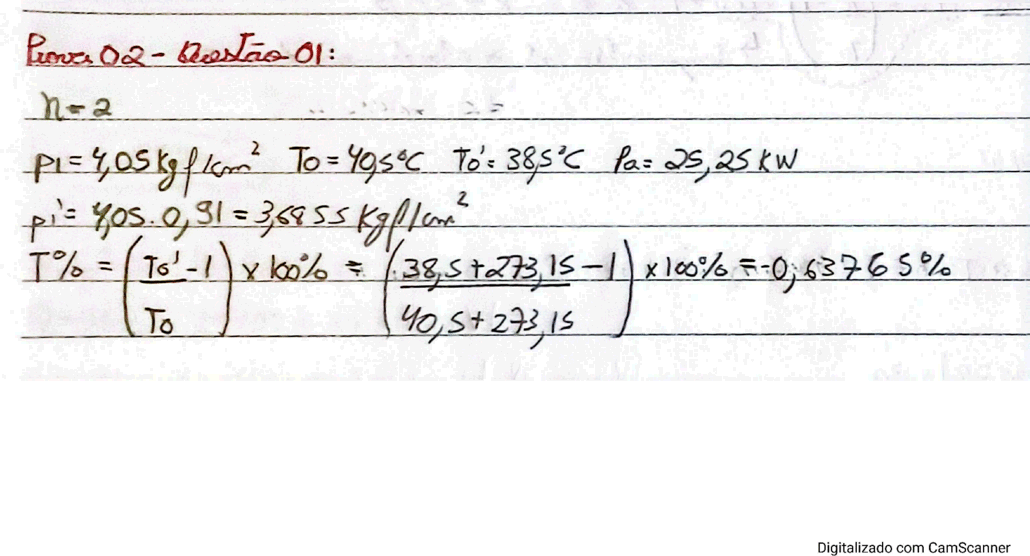 Prova 02 - Questão 01:
n = 2
pi = 4,05 Kgf/cm² To = 40,5°C To' = 38,5°C Pa = 25,25 KW
pi' = 4,05 . 0,91 = 3,6855 Kgf/cm²
T% = (To'/To - 1) x 100% = (38,5 + 273,15/40,5 + 273,15 - 1) x 100% = -0,63765%
Digitalizado com CamScanner